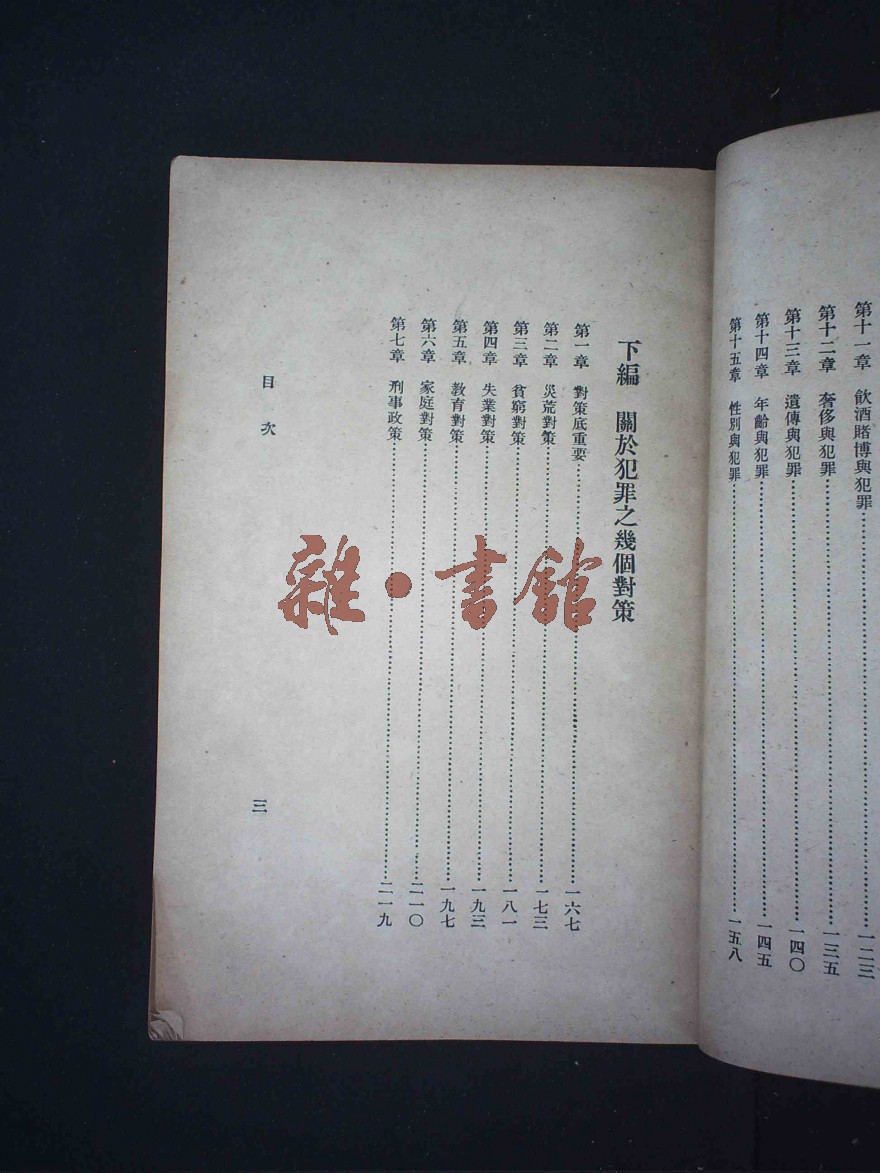 第十一章　飲酒賭博與犯罪……一二三
第十二章　奢侈與犯罪……一三五
第十三章　遺傳與犯罪……一四〇
第十四章　年齡與犯罪……一四五
第十五章　性別與犯罪……一五八
下編　關於犯罪之幾個對策
第一章　對策底重要……一六七
第二章　災荒對策……一七三
第三章　貧窮對策……一八一
第四章　失業對策……一九三
第五章　教育對策……一九七
第六章　家庭對策……二一〇
第七章　刑事政策……二一九
目次
三
雜·書館